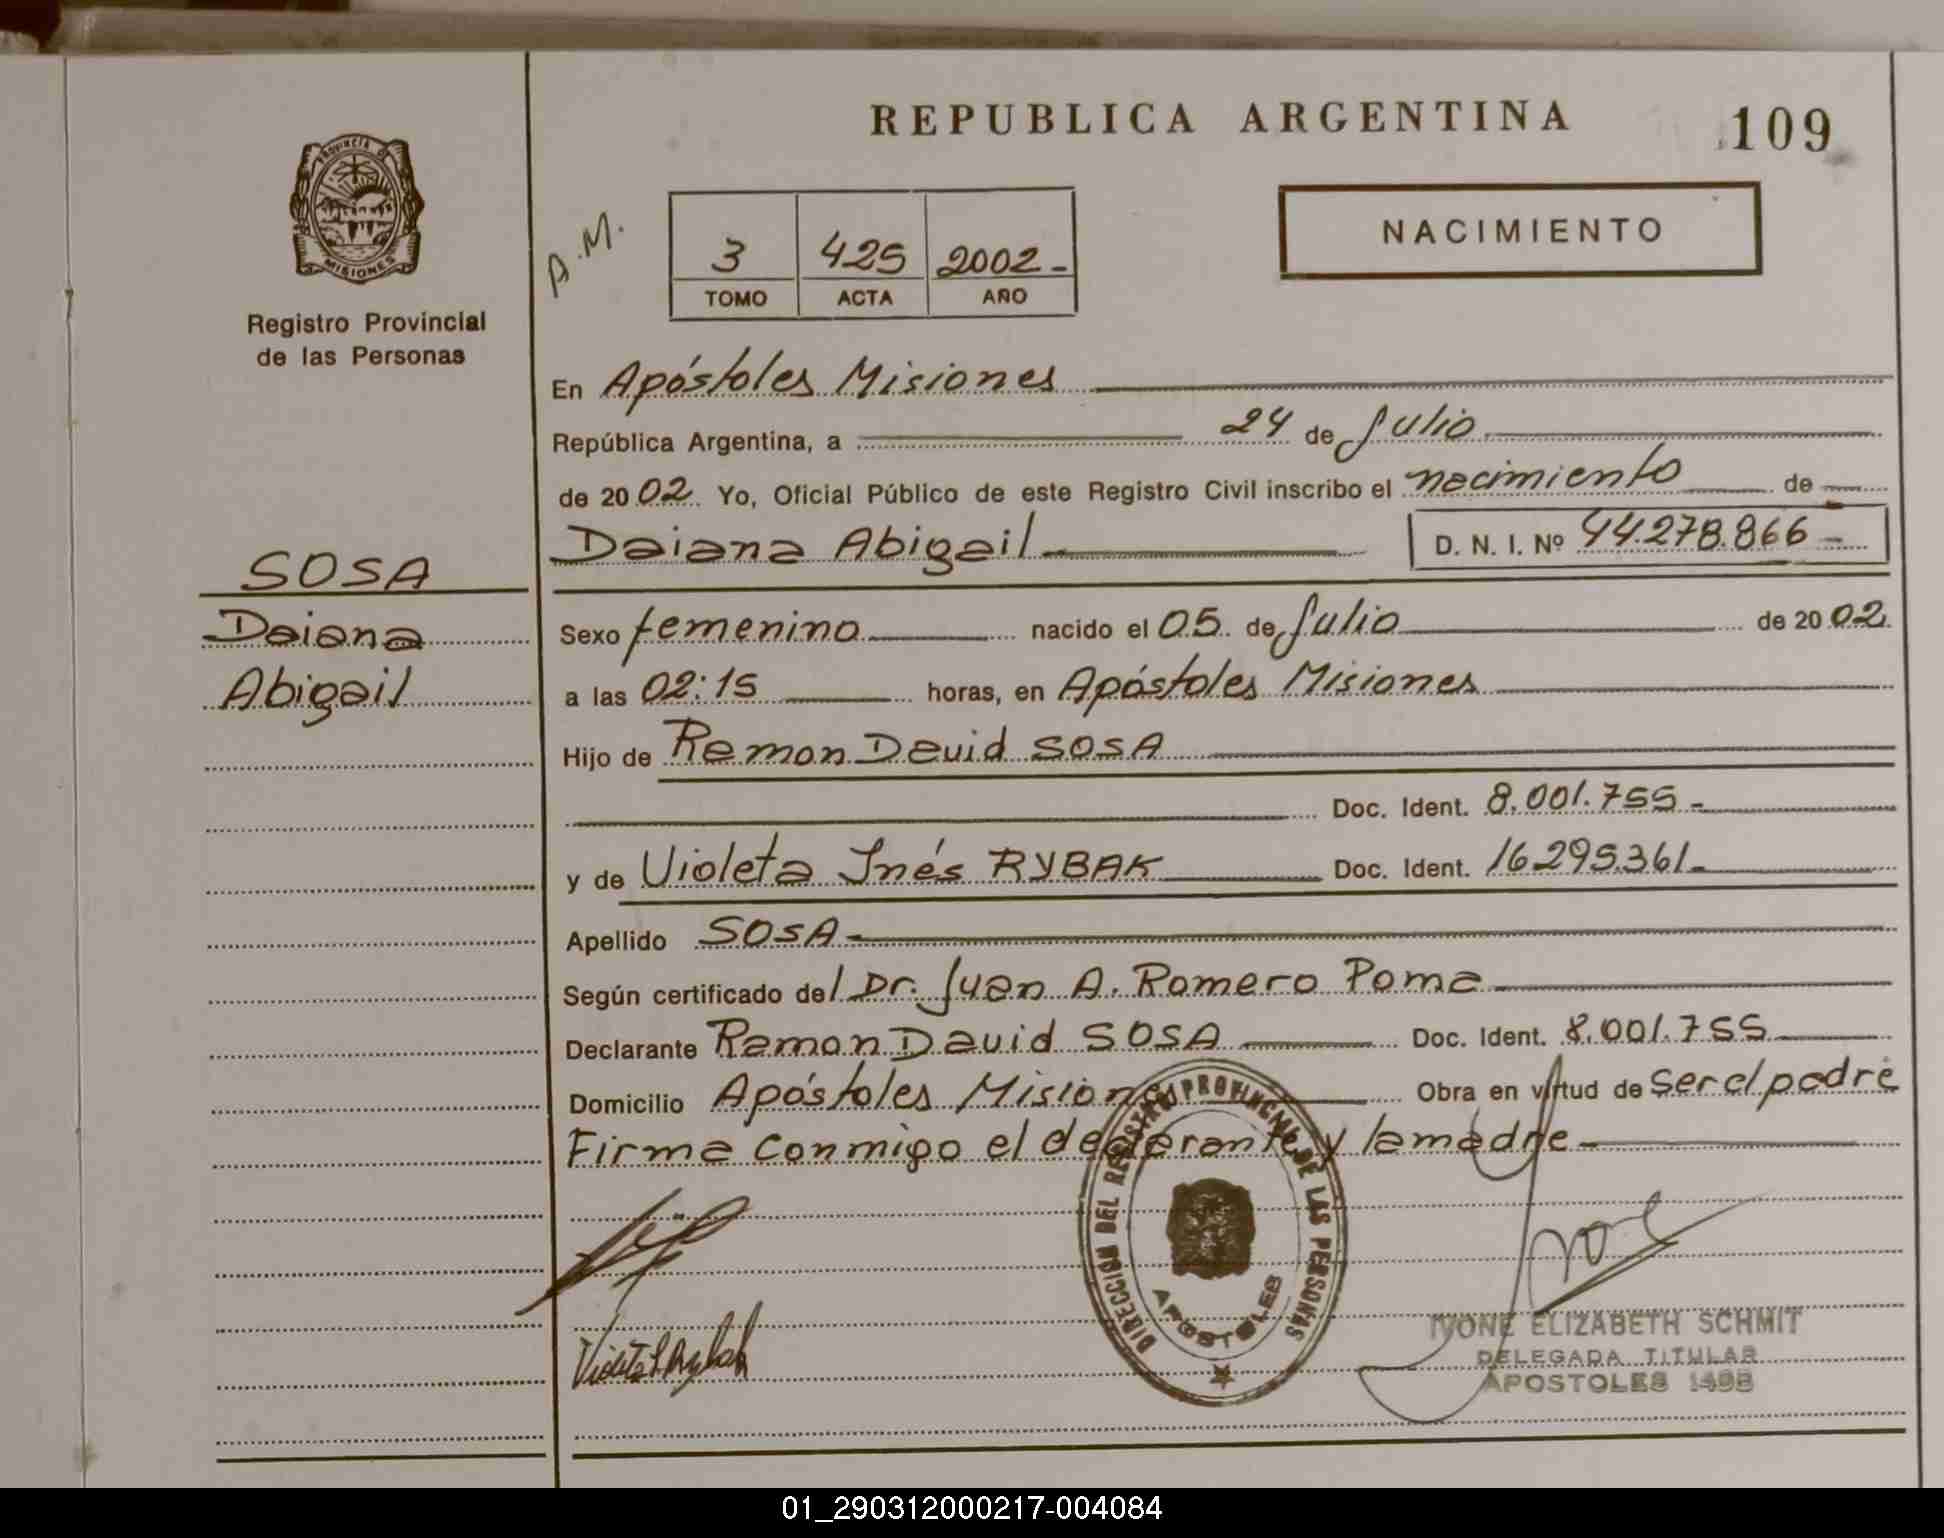 REPUBLICA ARGENTINA
109
PROVINCIA DE
MISIONES
Registro Provincial
de las Personas
A.M.
3 425 2002-
TOMO ACTA AÑO
NACIMIENTO
En Apóstoles Misiones
República Argentina, a 24 de Julio
de 20 02 Yo, Oficial Público de este Registro Civil inscribo el nacimiento de
Daiana Abigail D. N. I. Nº 44.278.866-
SOSA
Daiana
Abigail
Sexo femenino nacido el 05 de Julio de 20 02
a las 02:15 horas, en Apóstoles Misiones
Hijo de Ramon David SOSA
Doc. Ident. 8.001.755-
y de Violeta Inés RYBAK Doc. Ident. 16.295.361-
Apellido SOSA
Según certificado del Dr. Juan A. Romero Poma
Declarante Ramon David SOSA Doc. Ident. 8.001.755
Domicilio Apóstoles Misiones Obra en virtud de ser el padre
Firma conmigo el declarante y la madre
DIRECCION DEL REGISTRO PROVINCIAL DE LAS PERSONAS
APOSTOLES
Violeta I Rybak
IVONE ELIZABETH SCHMIT
DELEGADA TITULAR
APOSTOLES 1498
01_290312000217-004084